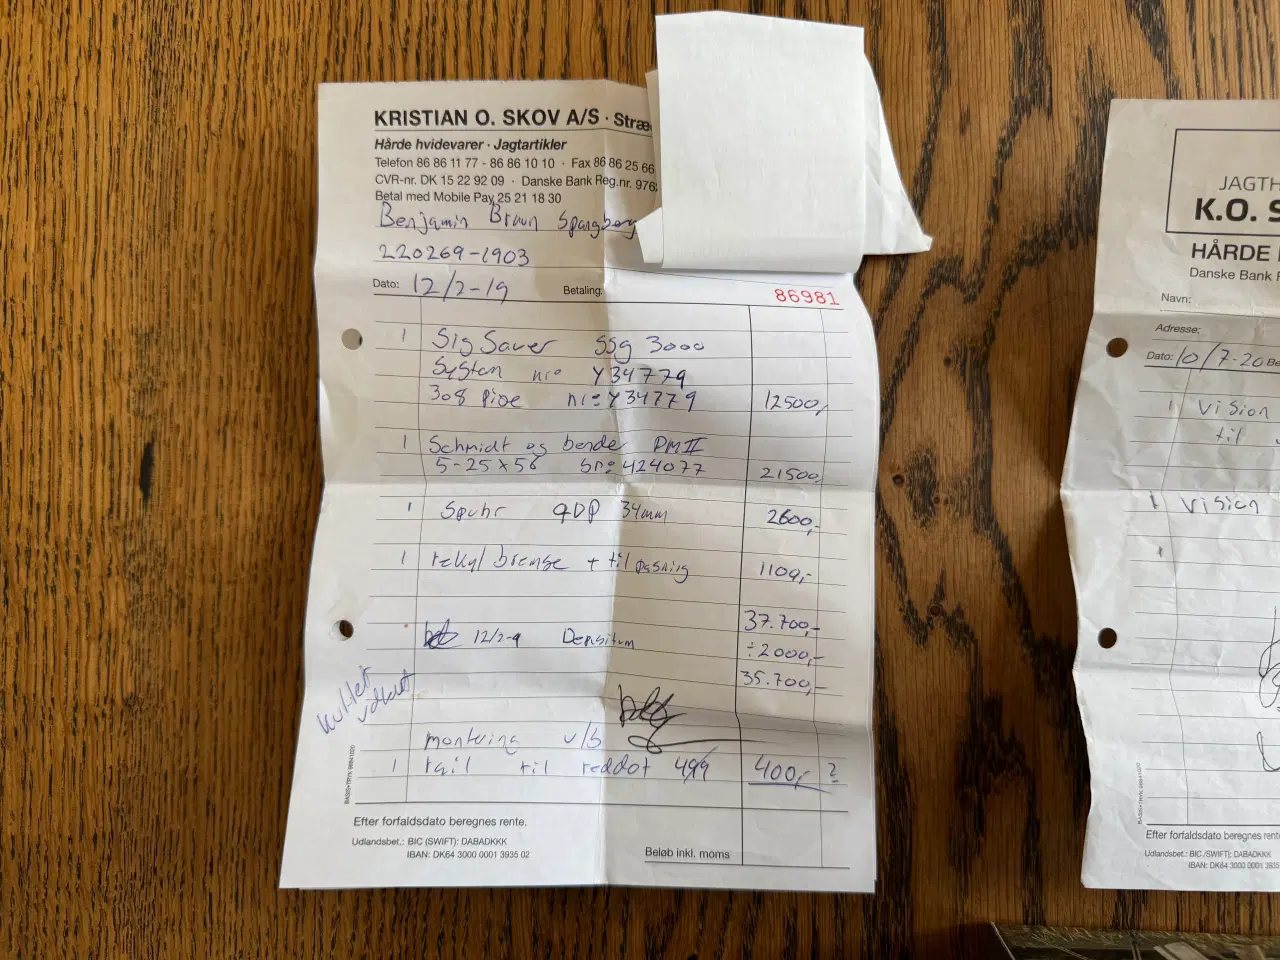 KRISTIAN O. SKOV A/S · Stræ
Hårde hvidevarer · Jagtartikler
Telefon 86 86 11 77 - 86 86 10 10 · Fax 86 86 25 66
CVR-nr. DK 15 22 92 09 · Danske Bank Reg.nr. 976
Betal med Mobile Pay 25 21 18 30
Benjamin Bruun Spangberg
220269-1903
Dato: 12/2-19 Betaling: 86981
1 Sig Sauer SSg 3000
System nr: Y34779
308 Pibe nr: Y34779 12500,-
1 Schmidt og bende PMII
5-25x56 Snr: 424077 21500,-
1 Spuhr QDP 34mm 2600,-
1 rekyl bremse + tilpasning 1100,-
37.700,-
12/2-19 Depositum ÷2000,-
35.700,-
montering v/b
1 rail til reddot 499 400,- ?
Efter forfaldsdato beregnes rente.
Udlandsbet.: BIC (SWIFT): DABADKKK
IBAN: DK64 3000 0001 3935 02
Beløb inkl. moms
JAGTH
K.O. S
HÅRDE
Danske Bank
Navn:
Adresse:
Dato: 10/7-20 Be
1 Vision
til
1 Vision
1
Efter forfaldsdato beregnes rente
Udlandsbet.: BIC (SWIFT): DABADKKK
IBAN: DK64 3000 0001 3935